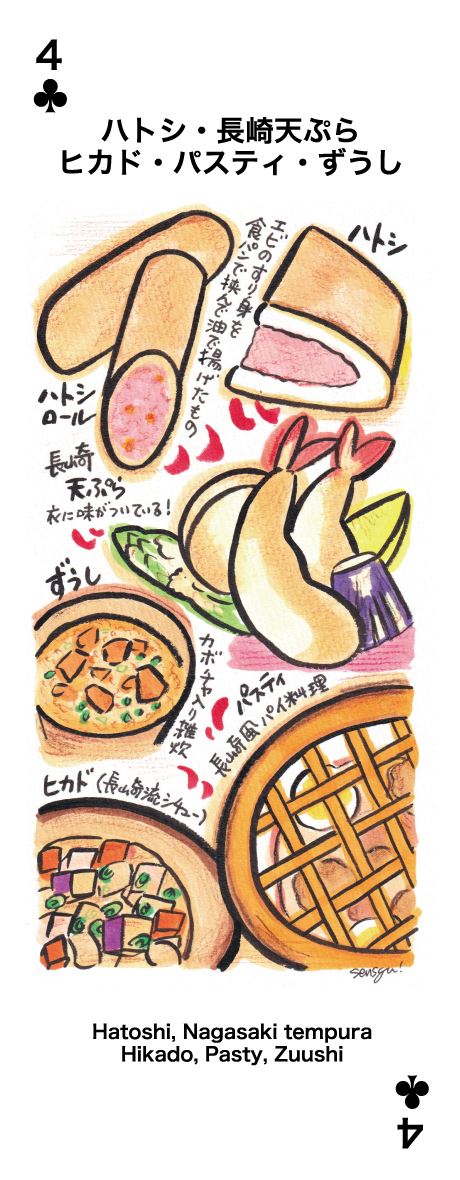 4
ハトシ・長崎天ぷら
ヒカド・パスティ・ずうし
ハトシ
エビのすり身を
食パンで挟んで油で揚げたもの
ハトシ
ロール
長崎
天ぷら
衣に味がついている!
ずうし
カボチャ入り雑炊
パスティ
長崎風パイ料理
ヒカド(長崎流シチュー)
sensgu!
Hatoshi, Nagasaki tempura
Hikado, Pasty, Zuushi
4